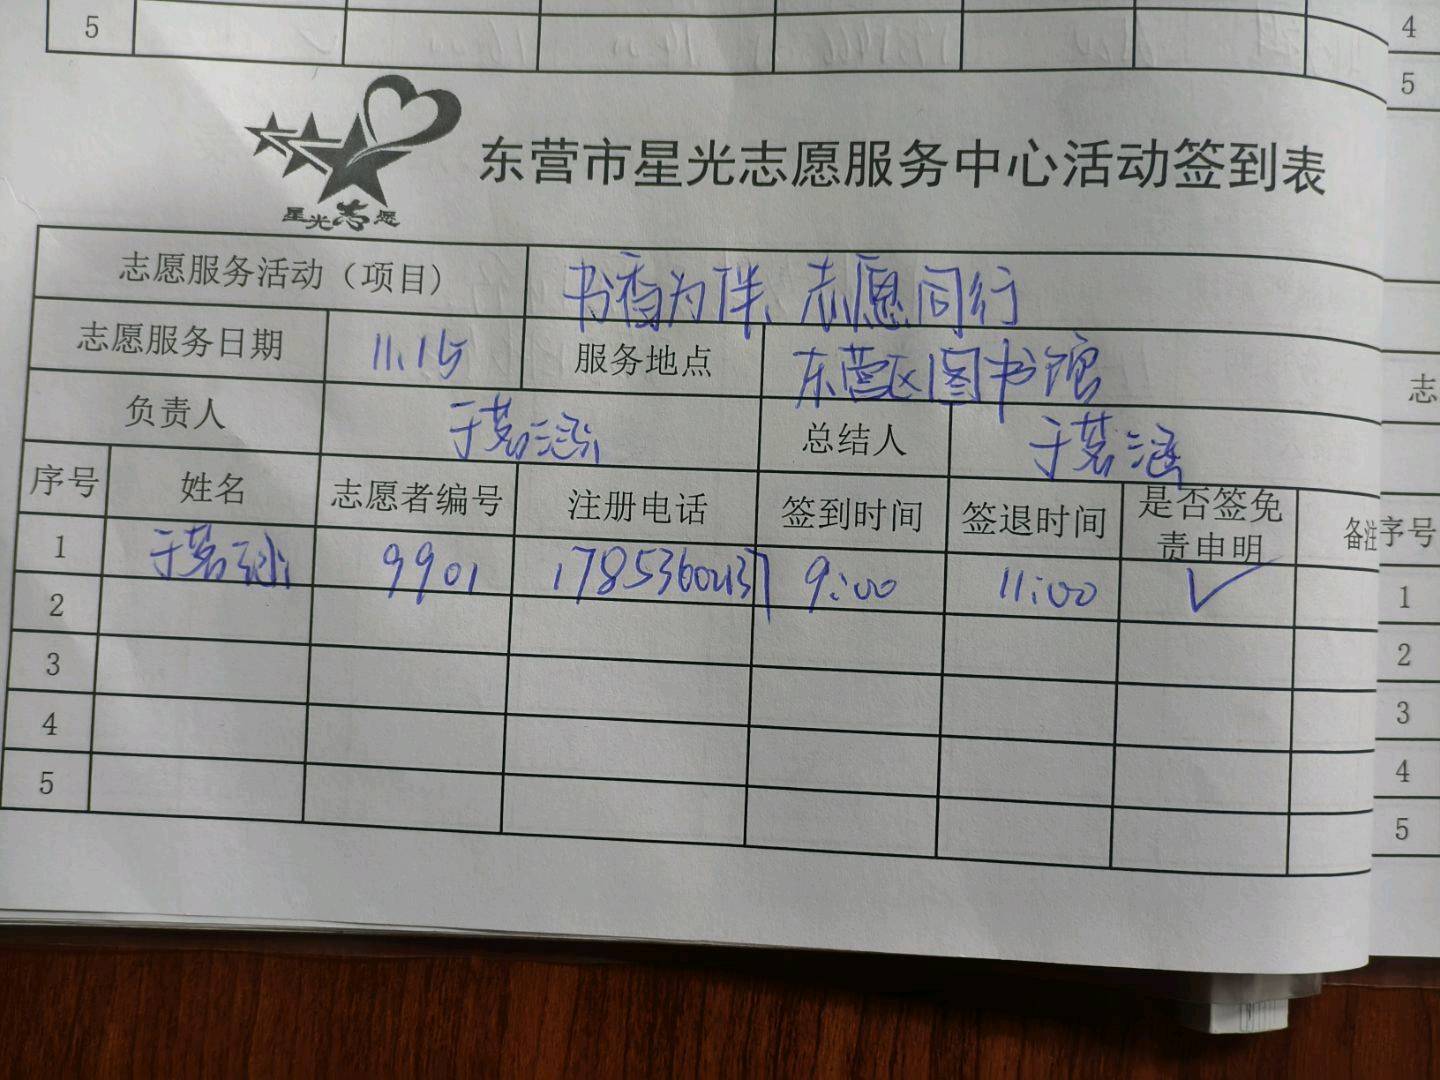 5
4
5
星光志愿
东营市星光志愿服务中心活动签到表
志愿服务活动（项目） 书香为伴、志愿同行
志愿服务日期 11.15 服务地点 东营区图书馆
志
负责人 于茗涵 总结人 于茗涵
序号 姓名 志愿者编号 注册电话 签到时间 签退时间 是否签免责申明 备注
序号
1 于茗涵 9901 9:00 11:00 ✓
1
2
2
3
3
4
4
5
5